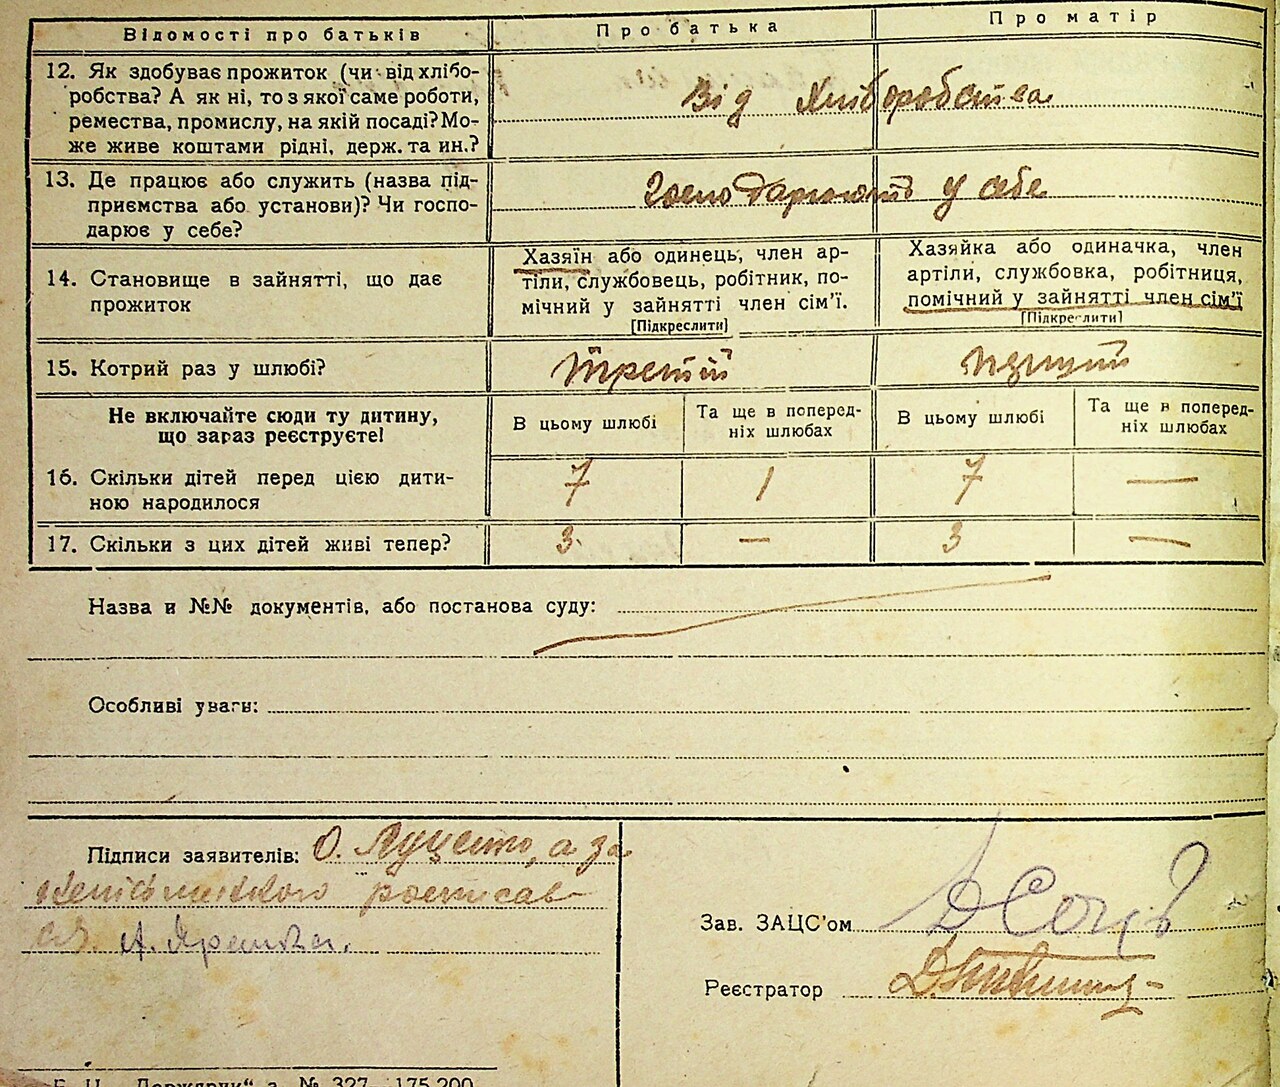 Відомості про батьків
Про батька
Про матір
12. Як здобуває прожиток (чи від хлібо-
робства? А як ні, то з якої саме роботи,
ремества, промислу, на якій посаді? Мо-
же живе коштами рідні, держ. та ин.?
Від хліборобства
13. Де працює або служить (назва під-
приємства або установи)? Чи госпо-
дарює у себе?
Господарюють у себе
14. Становище в зайнятті, що дає
прожиток
Хазяїн або одинець, член ар-
тіли, службовець, робітник, по-
мічний у зайнятті член сім'ї.
[Підкреслити]
Хазяйка або одиначка, член
артіли, службовка, робітниця,
помічний у зайнятті член сім'ї
[Підкреслити]
15. Котрий раз у шлюбі?
Третій
Не включайте сюди ту дитину,
що зараз реєструєте!
В цьому шлюбі
Та ще в поперед-
ніх шлюбах
В цьому шлюбі
Та ще в поперед-
ніх шлюбах
16. Скільки дітей перед цією дити-
ною народилося
7 1 7 —
17. Скільки з цих дітей живі тепер?
3 — 3 —
Назва и №№ документів, або постанова суду:
Особливі уваги:
Підписи заявителів: О. Луценко, а за
росписав-
ся А.
Зав. ЗАЦС'ом
Реєстратор
Держдрук" з. № 327—175.200